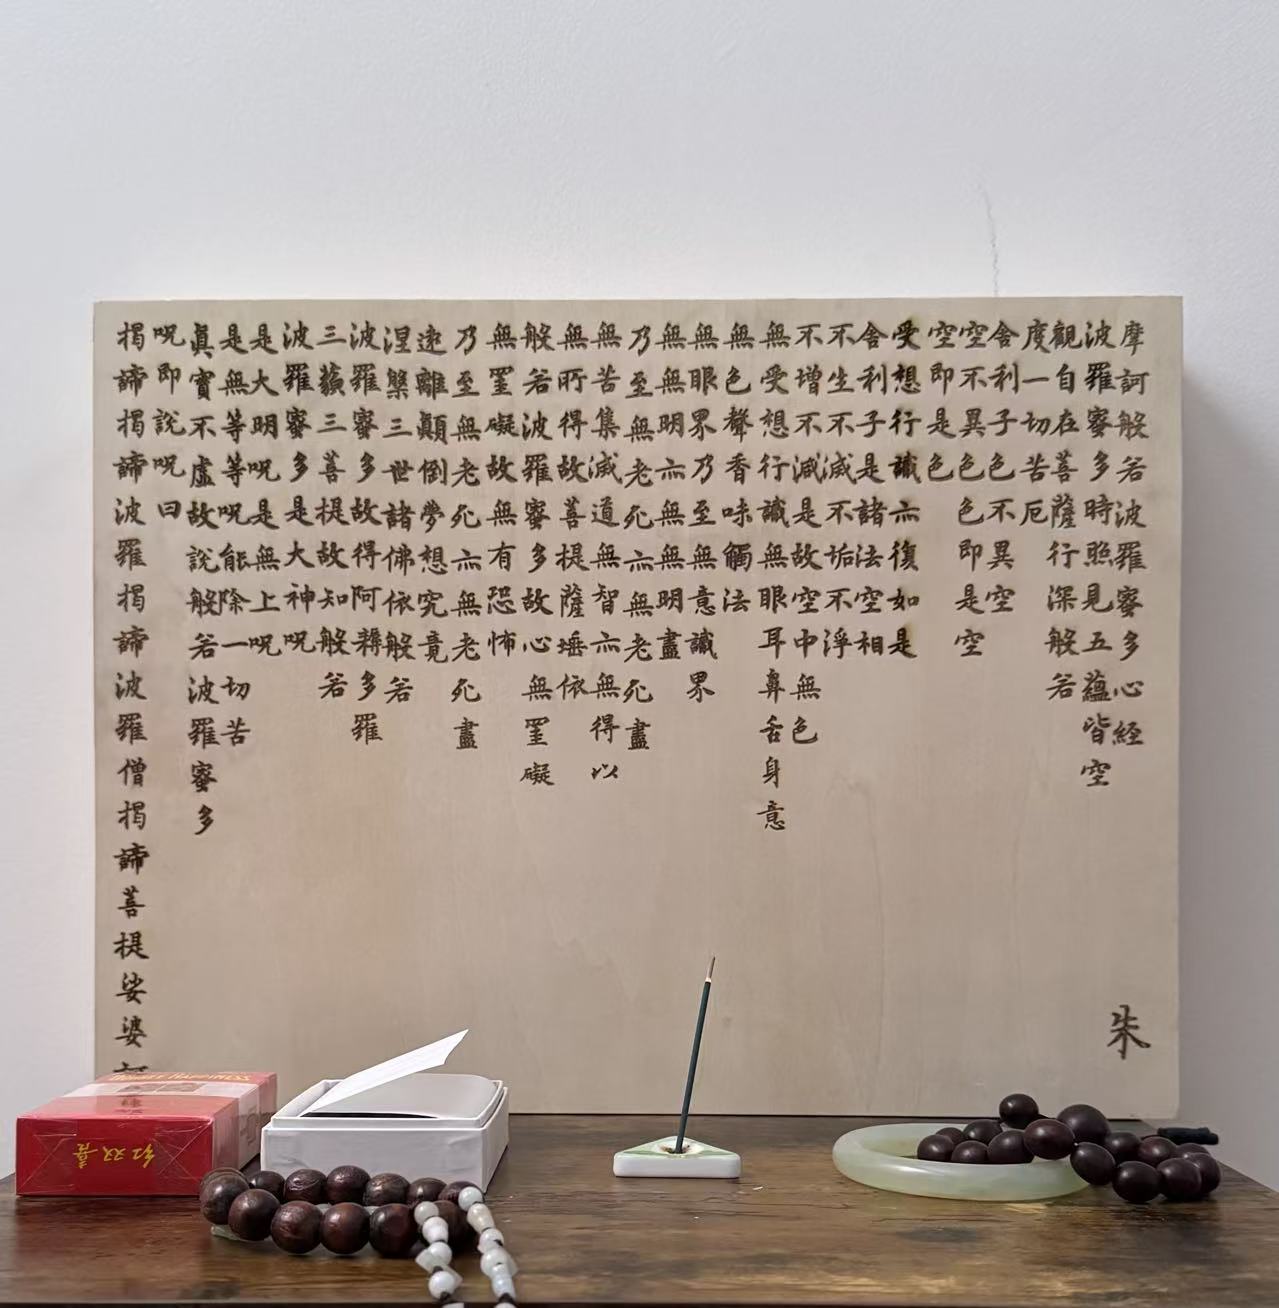 摩訶般若波羅蜜多心経
波羅蜜多時照見五蘊皆空
觀自在菩薩行深般若
度一切苦厄
舍利子色不異空
空不異色色即是空
空即是色
受想行識亦復如是
舍利子是諸法空相
不生不滅不垢不淨
不增不減是故空中無色
無受想行識無眼耳鼻舌身意
無色聲香味觸法
無眼界乃至無意識界
無無明亦無無明盡
乃至無老死亦無老死盡
無苦集滅道無智亦無得以
無所得故菩提薩埵依
般若波羅蜜多故心無罣礙
無罣礙故無有恐怖
乃至無老死亦無老死盡
遠離顛倒夢想究竟
涅槃三世諸佛依般若
波羅蜜多故得阿耨多羅
三藐三菩提故知般若
波羅蜜多是大神呪
是大明呪是無上呪
是無等等呪能除一切苦
眞實不虛故說般若波羅蜜多
呪即說呪曰
揭諦揭諦波羅揭諦波羅僧揭諦菩提娑婆
朱
DOUBLE HAPPINESS
红双喜